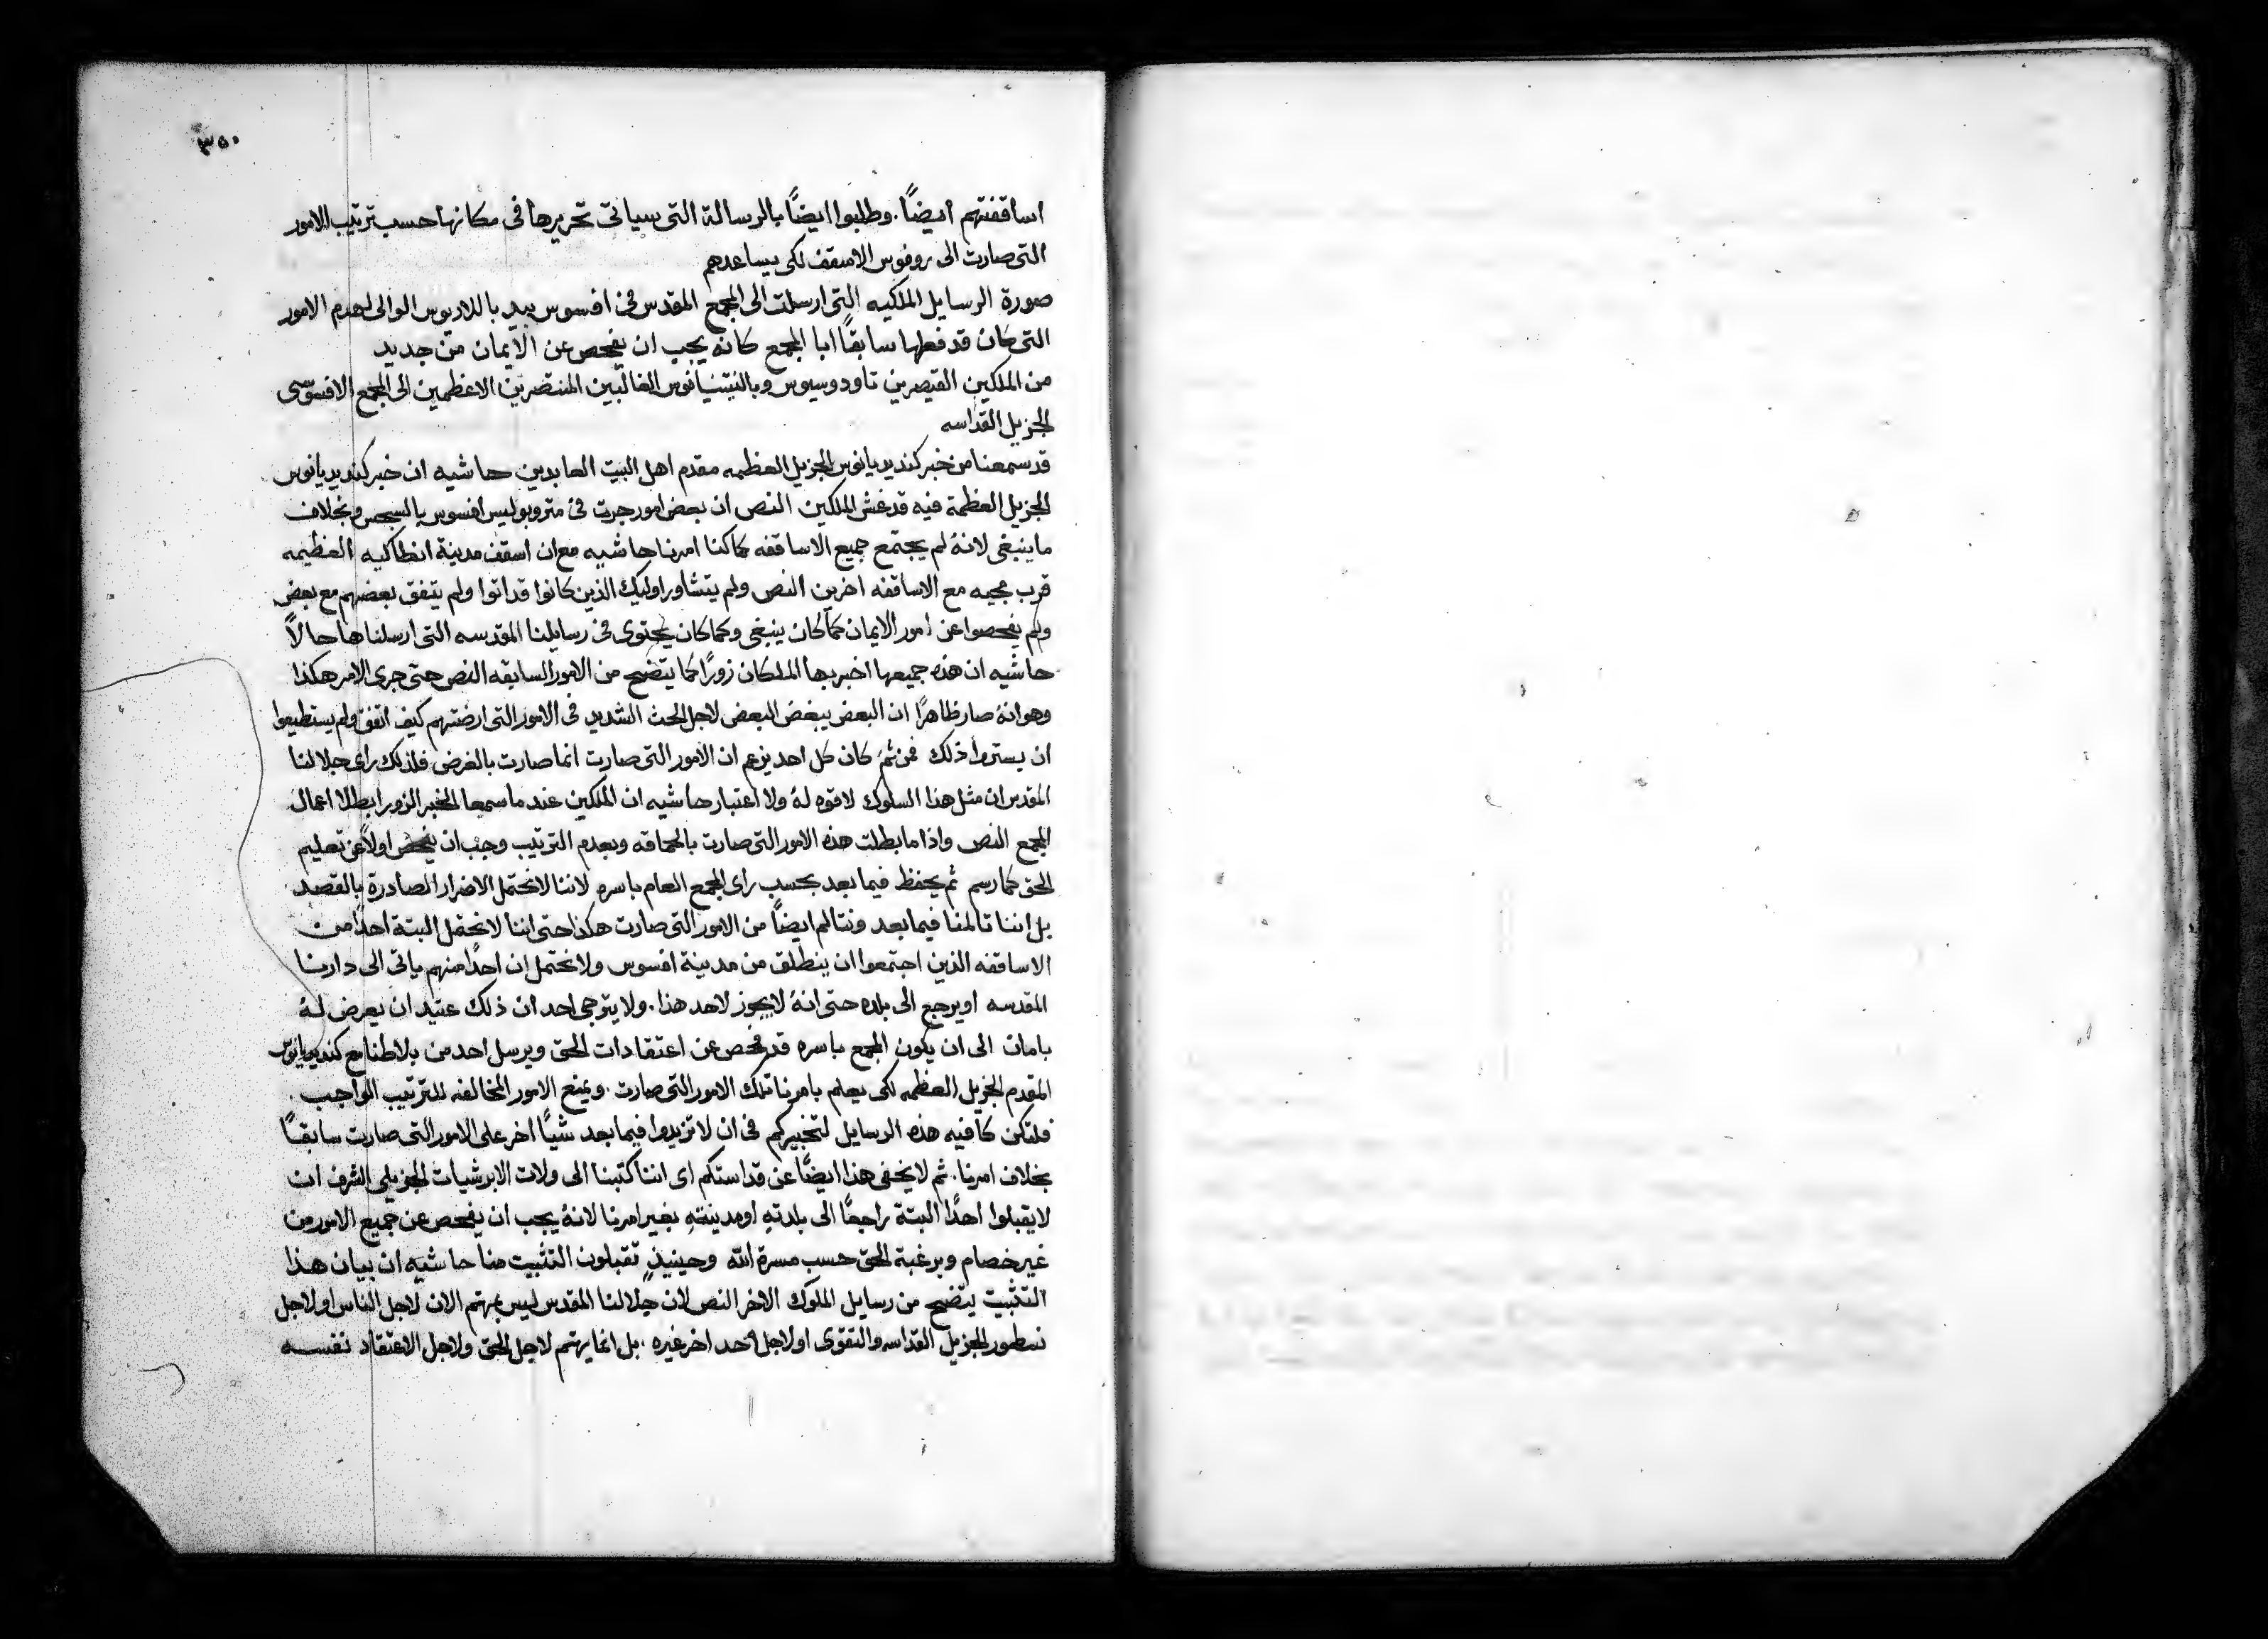 ٣٥٠
اساقفتهم ايضًا. وطلبوا ايضًا بالرسالة التى سياتى تحريرها فى مكانها حسب ترتيب الامور
التى صارت الى روفوس الاسقف لكى يساعدهم
صورة الرسايل الملكيه التى ارسلت الى المجمع المقدس فى افسوس بيد باللاديوس الوالى لهدم الامور
التى كان قد فعلها سابقًا ابا المجمع كانه يجب ان يفحص عن الايمان من جديد
من الملكين القيصرين تاودوسيوس وبالنتنيانوس الغالبين المنتصرين الاعظمين الى المجمع الافسوسى
الجزيل القداسه
قد سمعنا من خبر كنديديانوس الجزيل العظمه مقدم اهل البيت العابدين حاشيه ان خبر كنديديانوس
الجزيل العظمة فيه قد غش الملكين النص ان بعض امور جرت فى متروبوليس افسوس بالسجس وبخلاف
ما ينبغى لانهُ لم يجتمع جميع الاساقفه كما كنا امرنا حاشيه مع ان اسقف مدينة انطاكيه العظيمه
قرب مجيه مع الاساقفه اخرين النص ولم يتشاور اوليك الذين كانوا قد اتوا ولم يتفق بعضهم مع بعض
ولم يفحصوا عن امور الايمان كما كان ينبغى وكما كان يحتوى فى رسايلنا المقدسه التى ارسلناها حالاً
حاشيه ان هذه جميعها اخبر بها الملكان زورًا كما يتضح من الامور السابقه النص حتى جرى الامر هكذا
وهو انهُ صار ظاهرًا ان البعض يبغض البعض لاجل الحث الشديد فى الامور التى ارضتهم كيف اتفق ولم يستطيعوا
ان يستروا ذلك فمن ثمَ كان كل احد يزعم ان الامور التى صارت انما صارت بالغرض فلذلك راى جلالنا
المقدس ان مثل هذا السلوك لا قوه لهُ ولا اعتبار حاشيه ان الملكين عند ما سمعا الخبر الزور ابطلا اعمال
المجمع النص واذا ما بطلت هذه الامور التى صارت بالحماقه وبعدم الترتيب وجب ان يفحص اولاً عن تعليم
الحق كما رسم ثم يحفظ فيما بعد بحسب راى المجمع العام باسره لاننا لا نحتمل الاضرار الصادرة بالقصد
بل اننا تالمنا فيما بعد ونتالم ايضًا من الامور التى صارت هكذا حتى اننا لا نحتمل البتة احدًا من
الاساقفه الذين اجتمعوا ان ينطلق من مدينة افسوس ولا نحتمل ان احدًا منهم ياتى الى دارنا
المقدسه او يرجع الى بلده حتى انهُ لا يجوز لاحد هذا. ولا يترجى احد ان ذلك عتيد ان يعرض لهُ
بامان الى ان يكون المجمع باسره قد فحص عن اعتقادات الحق ويرسل احد من بلاطنا مع كنديديانوس
المقدم الجزيل العظمه لكى يعلم بامرنا تلك الامور التى صارت. ويمنع الامور المخالفه للترتيب الواجب.
فلتكن كافيه هذه الرسايل لتخبيركم فى ان لا تزيدوا فيما بعد شيًا اخر على الامور التى صارت سابقًا
بخلاف امرنا. ثم لا يخفى هذا ايضًا عن قداستكم اى اننا كتبنا الى ولات الابرشيات الجزيلى الشرف ان
لا يقبلوا احدًا البتة راجعًا الى بلدتهِ او مدينتهِ بغير امرنا لانهُ يجب ان يفحص عن جميع الامور من
غير خصام وبرغبة الحق حسب مسرة الله وحينيذٍ تقبلون التثبيت منا حاشيه ان بيان هذا
التثبيت يتضح من رسايل الملوك الاخر النص لان جلالنا المقدس ليس بمهتم الان لاجل الناس او لاجل
نسطور الجزيل القداسه والتقوى او لاجل احد اخر غيره. بل انما يهتم لاجل الحق ولاجل الاعتقاد نفسه